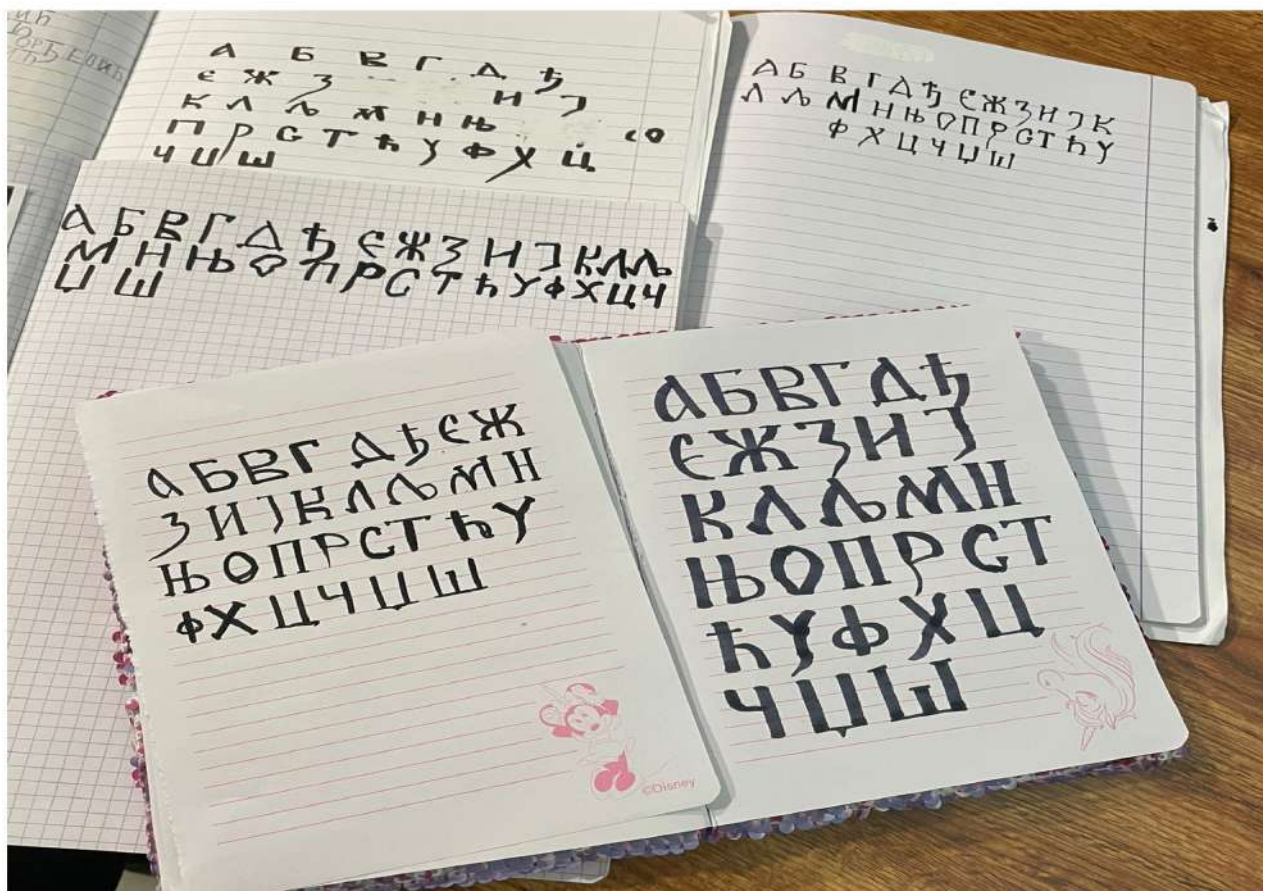 А Б В Г Д Ђ
Є Ж З И Ј
К Л Љ М Н Њ
П Р С Т Ћ У Ф Х Ц
Ч Џ Ш
А Б В Г Д Ђ Є Ж З И Ј К Л Љ
М Н Њ О П Р С Т Ћ У Ф Х Ц Ч
Џ Ш
А Б В Г Д Ђ Є Ж З И Ј К
Л Љ М Н Њ О П Р С Т Ћ У
Ф Х Ц Ч Џ Ш
А Б В Г Д Ђ Є Ж
З И Ј К Л Љ М Н
Њ О П Р С Т Ћ У
Ф Х Ц Ч Џ Ш
©Disney
А Б В Г Д Ђ
Є Ж З И Ј
К Л Љ М Н
Њ О П Р С Т
Ћ У Ф Х Ц
Ч Џ Ш